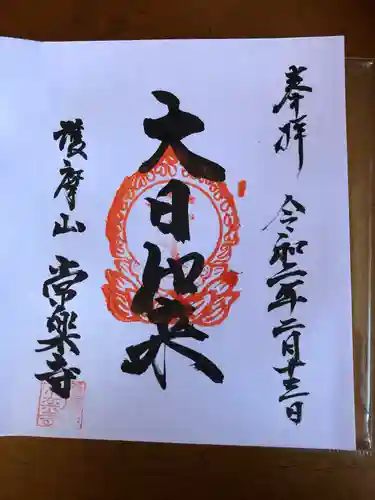 奉拝
令和二年二月十三日
大日如来
護摩山
常樂寺